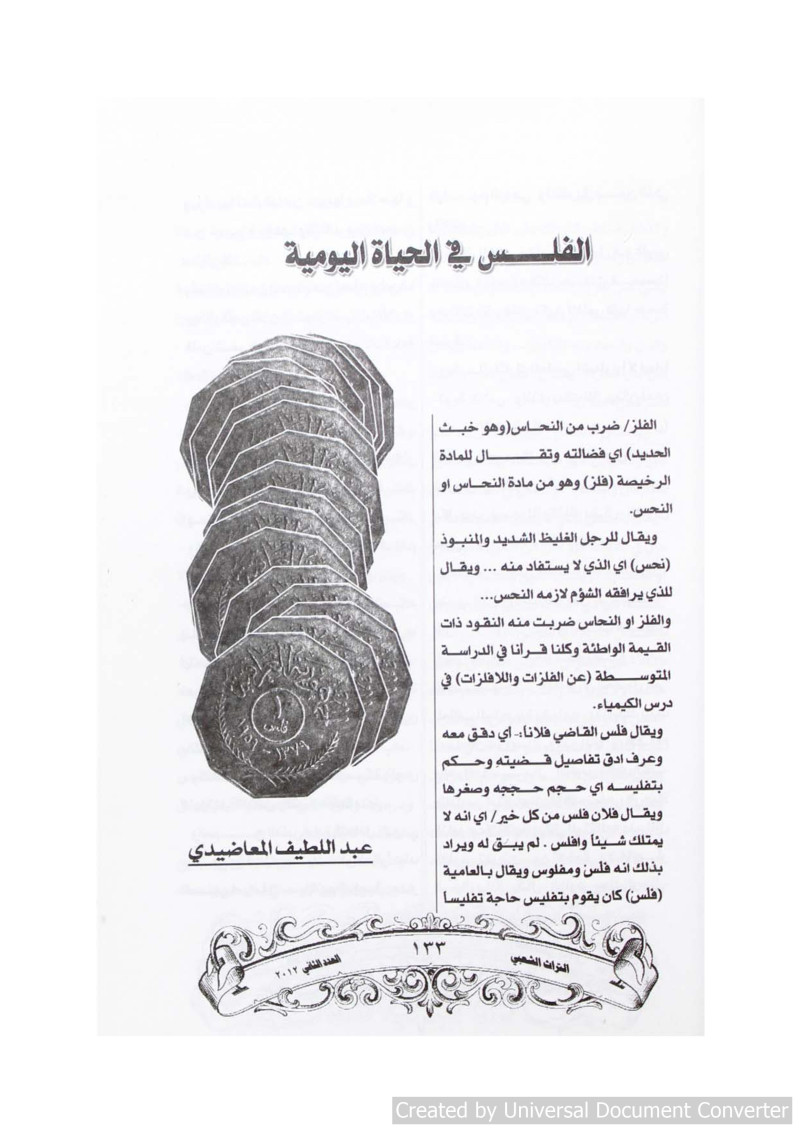 الفلـــــس في الحياة اليومية
الفلز/ ضرب من النحـاس(وهو خبـث
الحديد) اي فضالته وتقـــــــال للمادة
الرخيصة (فلز) وهو من مادة النحـاس او
النحس.
ويقال للرجل الغليظ الشديد والمنبـوذ
(نحس) اي الذي لا يستفاد منه ... ويقـال
للذي يرافقه الشؤم لازمه النحس...
والفلز او النحاس ضربت منه النقـود ذات
القيمة الواطئة وكلنا قرأنا في الدراسة
المتوســطة (عن الفلزات واللافلزات) في
درس الكيمياء.
ويقال فلّس القاضي فلاناً:- أي دقـق معه
وعرف ادق تفاصيل قـضيتهِ وحـكم
بتفليسه اي حـجم حـججه وصغرها
ويقـال فلان فلس من كل خير/ اي انه لا
يمتلك شـيئاً وافلس . لم يبـق له ويراد
بذلك انه فلسَ ومفلوس ويقال بـالعامية
(فلّسَ) كان يقوم بتفليس حاجة تفليسـا
جمهورية العراقية
١
فلس
١٣٧٩ - ١٩٥٩
عبد اللطيف المعاضيدي
١٣٣
التراث الشعبي
العدد الثاني ٢٠١٢
Created by Universal Document Converter